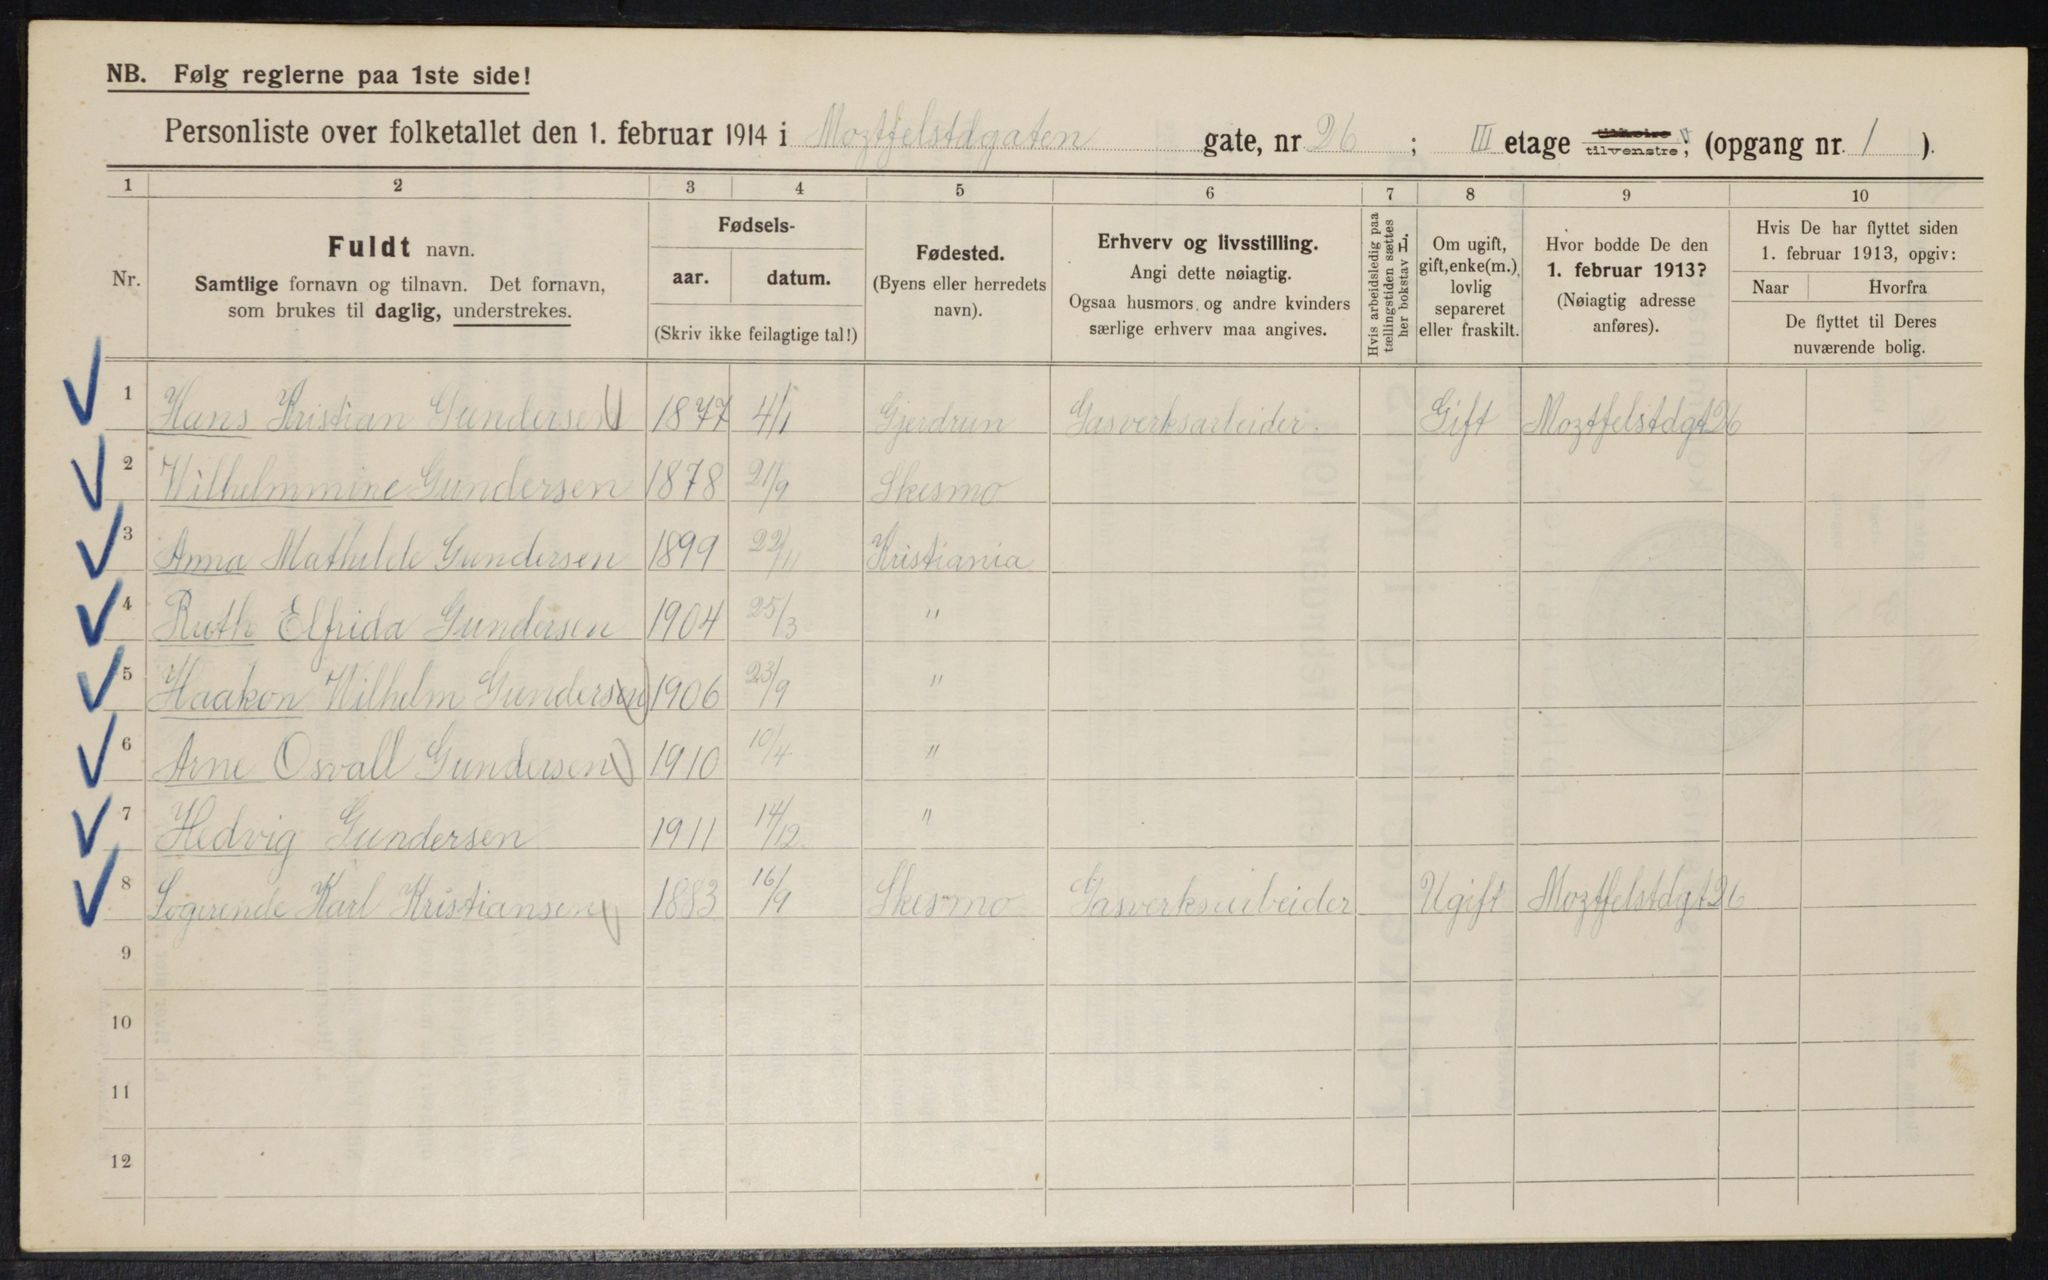 NB. Følg reglerne paa 1ste side!
Personliste over folketallet den 1. februar 1914 i Moztfelstdgaten gate, nr. 26 ; III etage tilvenstre, (opgang nr. 1 ).
1 2 3 4 5 6 7 8 9 10
Nr.
Fuldt navn.
Samtlige fornavn og tilnavn. Det fornavn,
som brukes til daglig, understrekes.
Fødsels-
aar. datum.
(Skriv ikke feilagtige tal!)
Fødested.
(Byens eller herredets
navn).
Erhverv og livsstilling.
Angi dette nøiagtig.
Ogsaa husmors og andre kvinders
særlige erhverv maa angives.
Hvis arbeidsledig paa
tællingstiden sættes
her bokstav L.
Om ugift,
gift, enke(m.),
lovlig
separeret
eller fraskilt.
Hvor bodde De den
1. februar 1913?
(Nøiagtig adresse
anføres).
Hvis De har flyttet siden
1. februar 1913, opgiv:
Naar Hvorfra
De flyttet til Deres
nuværende bolig.
1 Hans Kristian Gundersen 1877 4/1 Gjerdrun Gasverksarbeider. Gift Moztfelstdgt 26
2 Wilhelmmine Gundersen 1878 21/9 Skesmo
3 Anna Mathilde Gundersen 1899 22/11 Kristiania
4 Ruth Elfrida Gundersen 1904 25/3 "
5 Haakon Wilhelm Gundersen 1906 23/9 "
6 Arne Osvall Gundersen 1910 10/4 "
7 Hedvig Gundersen 1911 14/12 "
8 Logerende Karl Kristiansen 1883 16/9 Skesmo Gasverksarbeider Ugift Moztfelstdgt 26
9
10
11
12